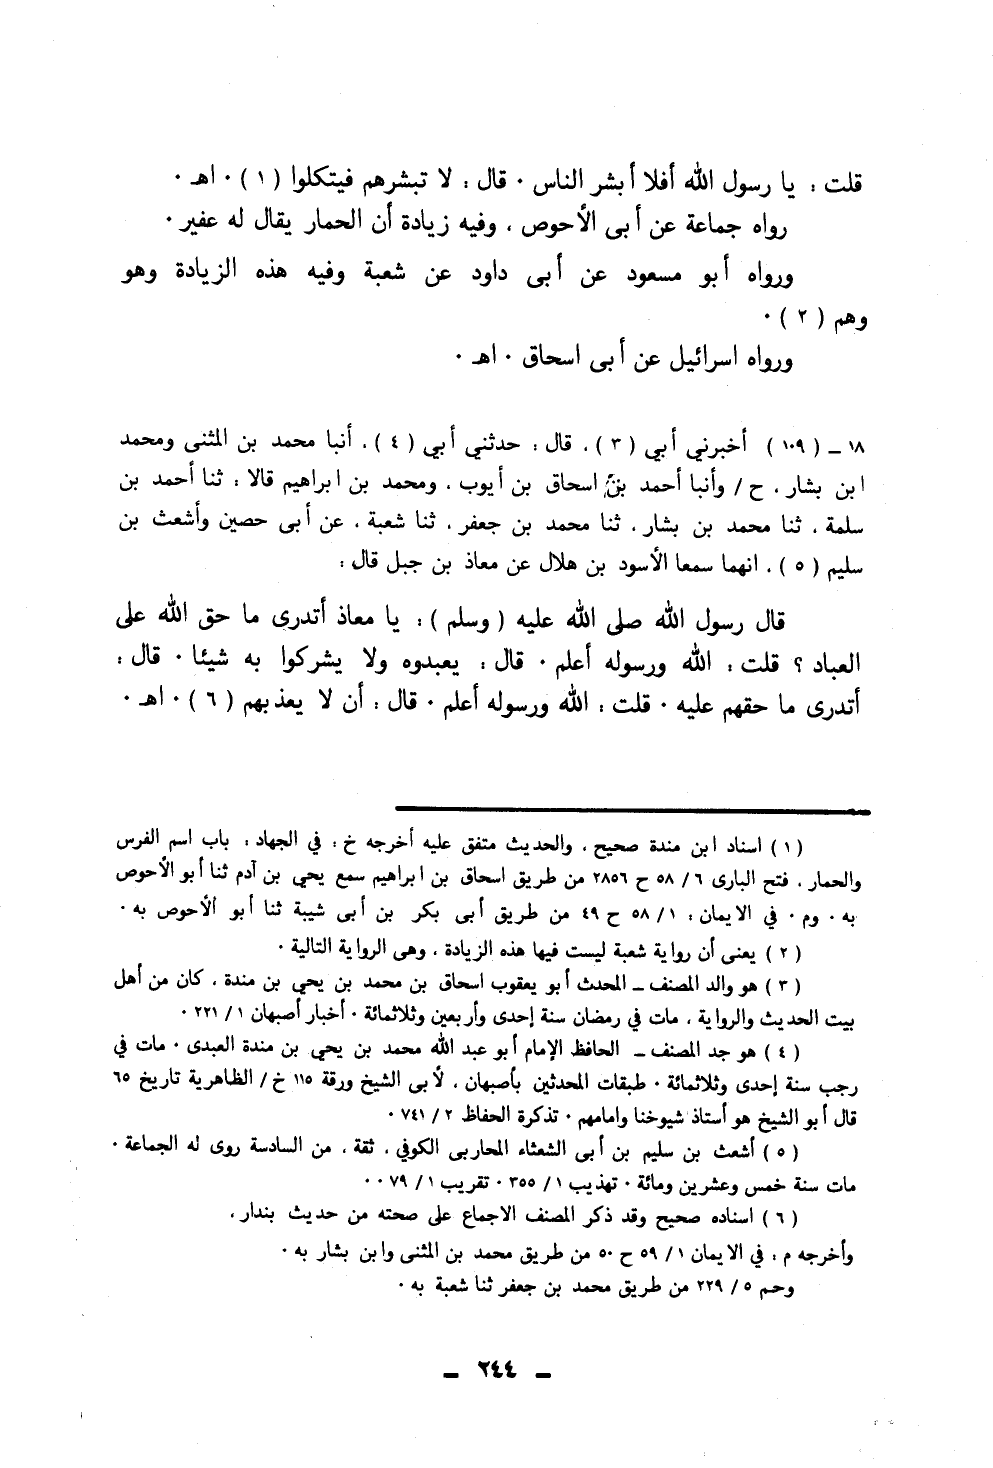 قلت : يا رسول الله أفلا أبشر الناس . قال : لا تبشرهم فيتكلوا ( ١ ) . اهـ .
رواه جماعة عن أبى الأحوص ، وفيه زيادة أن الحمار يقال له عفير .
ورواه أبو مسعود عن أبى داود عن شعبة وفيه هذه الزيادة وهو
وهم ( ٢ ) .
ورواه اسرائيل عن أبى اسحاق . اهـ .
١٨ ــ ( ١٠٩ ) أخبرني أبي ( ٣ ) ، قال : حدثني أبي ( ٤ ) ، أنبا محمد بن المثنى ومحمد
ابن بشار ، ح / وأنبا أحمد بن اسحاق بن أيوب ، ومحمد بن ابراهيم قالا : ثنا أحمد بن
سلمة ، ثنا محمد بن بشار ، ثنا محمد بن جعفر ، ثنا شعبة ، عن أبى حصين وأشعث بن
سليم ( ٥ ) ، انهما سمعا الأسود بن هلال عن معاذ بن جبل قال :
قال رسول الله صلى الله عليه ( وسلم ) : يا معاذ أتدرى ما حق الله على
العباد ؟ قلت : الله ورسوله أعلم . قال : يعبدوه ولا يشركوا به شيئا . قال :
أتدرى ما حقهم عليه . قلت : الله ورسوله أعلم . قال : أن لا يعذبهم ( ٦ ) . اهـ .
( ١ ) اسناد ابن مندة صحيح ، والحديث متفق عليه أخرجه خ : في الجهاد : باب اسم الفرس
والحمار ، فتح البارى ٦ / ٥٨ ح ٢٨٥٦ من طريق اسحاق بن ابراهيم سمع يحي بن آدم ثنا أبو الأحوص
به . وم . في الايمان : ١ / ٥٨ ح ٤٩ من طريق أبى بكر بن أبى شيبة ثنا أبو الأحوص به .
( ٢ ) يعنى أن رواية شعبة ليست فيها هذه الزيادة ، وهى الرواية التالية .
( ٣ ) هو والد المصنف ــ المحدث أبو يعقوب اسحاق بن محمد بن يحي بن مندة ، كان من أهل
بيت الحديث والرواية ، مات في رمضان سنة إحدى وأربعين وثلاثمائة . أخبار أصبهان ١ / ٢٢١ .
( ٤ ) هو جد المصنف ــ الحافظ الإمام أبو عبد الله محمد بن يحي بن مندة العبدى . مات في
رجب سنة إحدى وثلاثمائة . طبقات المحدثين بأصبهان ، لأبى الشيخ ورقة ١١٥ خ / الظاهرية تاريخ ٦٥
قال أبو الشيخ هو أستاذ شيوخنا وامامهم . تذكرة الحفاظ ٢ / ٧٤١ .
( ٥ ) أشعث بن سليم بن أبى الشعثاء المحاربى الكوفي ، ثقة ، من السادسة روى له الجماعة .
مات سنة خمس وعشرين ومائة . تهذيب ١ / ٣٥٥ . تقريب ١ / ٧٩ . .
( ٦ ) اسناده صحيح وقد ذكر المصنف الاجماع على صحته من حديث بندار ،
وأخرجه م : في الايمان ١ / ٥٩ ح ٥٠ من طريق محمد بن المثنى وابن بشار به .
وحم ٥ / ٢٢٩ من طريق محمد بن جعفر ثنا شعبة به .
ــ ٢٤٤ ــ